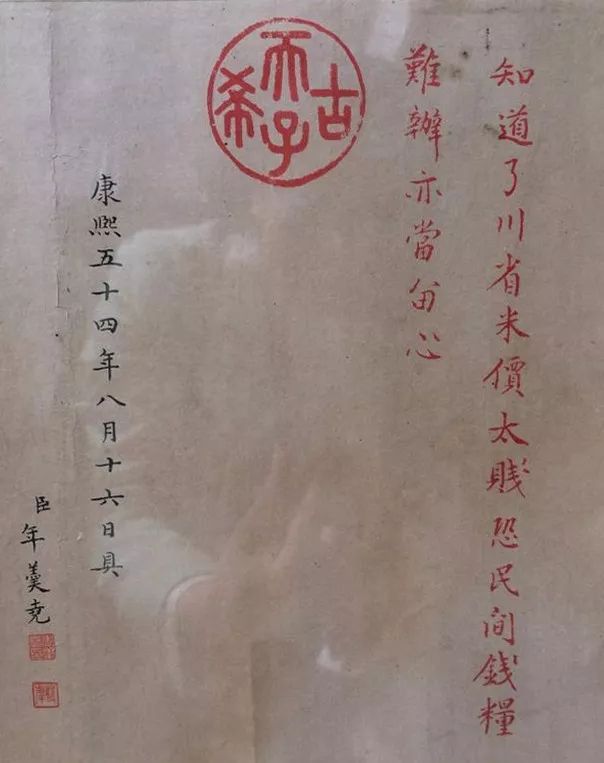 知道了川省米價太賤恐民间錢糧
難辦亦當留心
古希天子
康熙五十四年八月十六日具
臣年羹尭